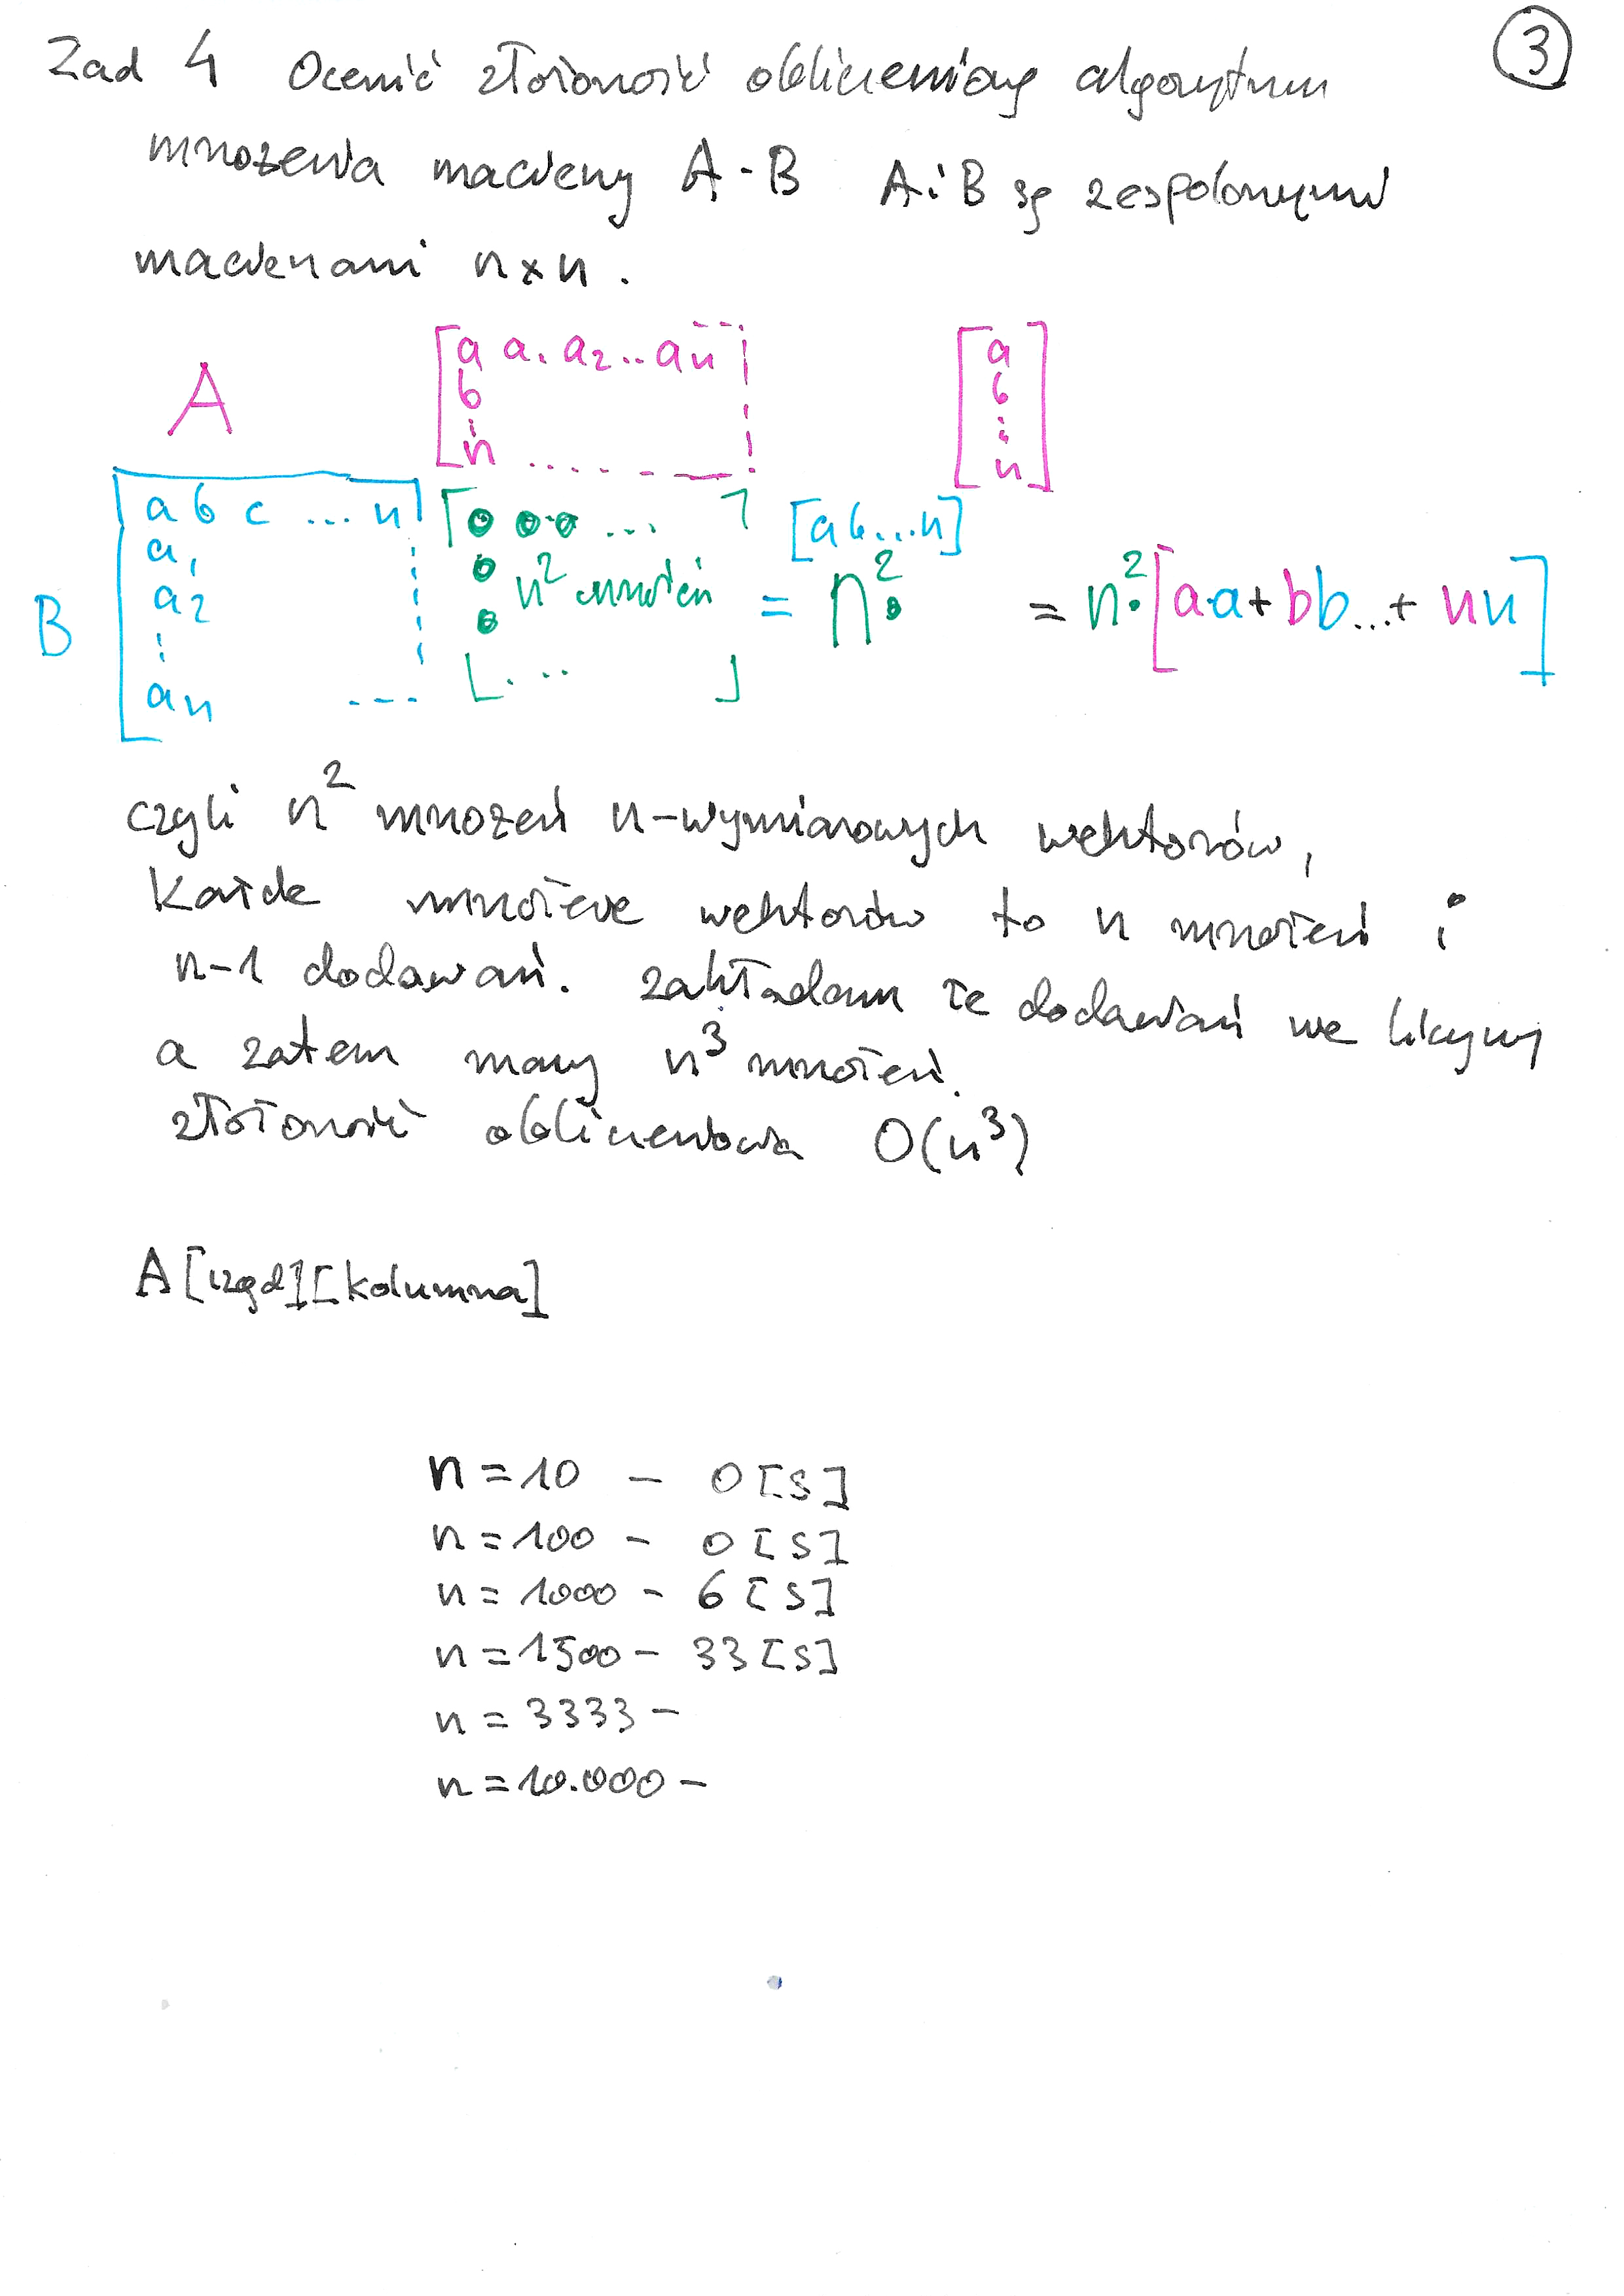 3
Zad 4 Ocenić złożoność obliczeniową algorytmu
mnożenia macierzy A·B A i B są zespolonymi
macierzami n×n.
A
[a a₁ a₂..an
b
⋮
n .....
[a
b
⋮
n]
B
a b c ... n
a₁
a₂
⋮
an ....
n² mnożeń
[a b...n]
= n² · = n²·[a·a+bb...+nn]
czyli n² mnożeń n-wymiarowych wektorów,
Każde mnożenie wektorów to n mnożeń i
n-1 dodawań. zakładam że dodawań nie liczymy
a zatem mamy n³ mnożeń.
złożoność obliczeniowa O(n³)
A[rząd][kolumna]
n=10 - 0[s]
n=100 - 0[s]
n=1000 - 6[s]
n=1500 - 33[s]
n=3333 -
n=10.000 -